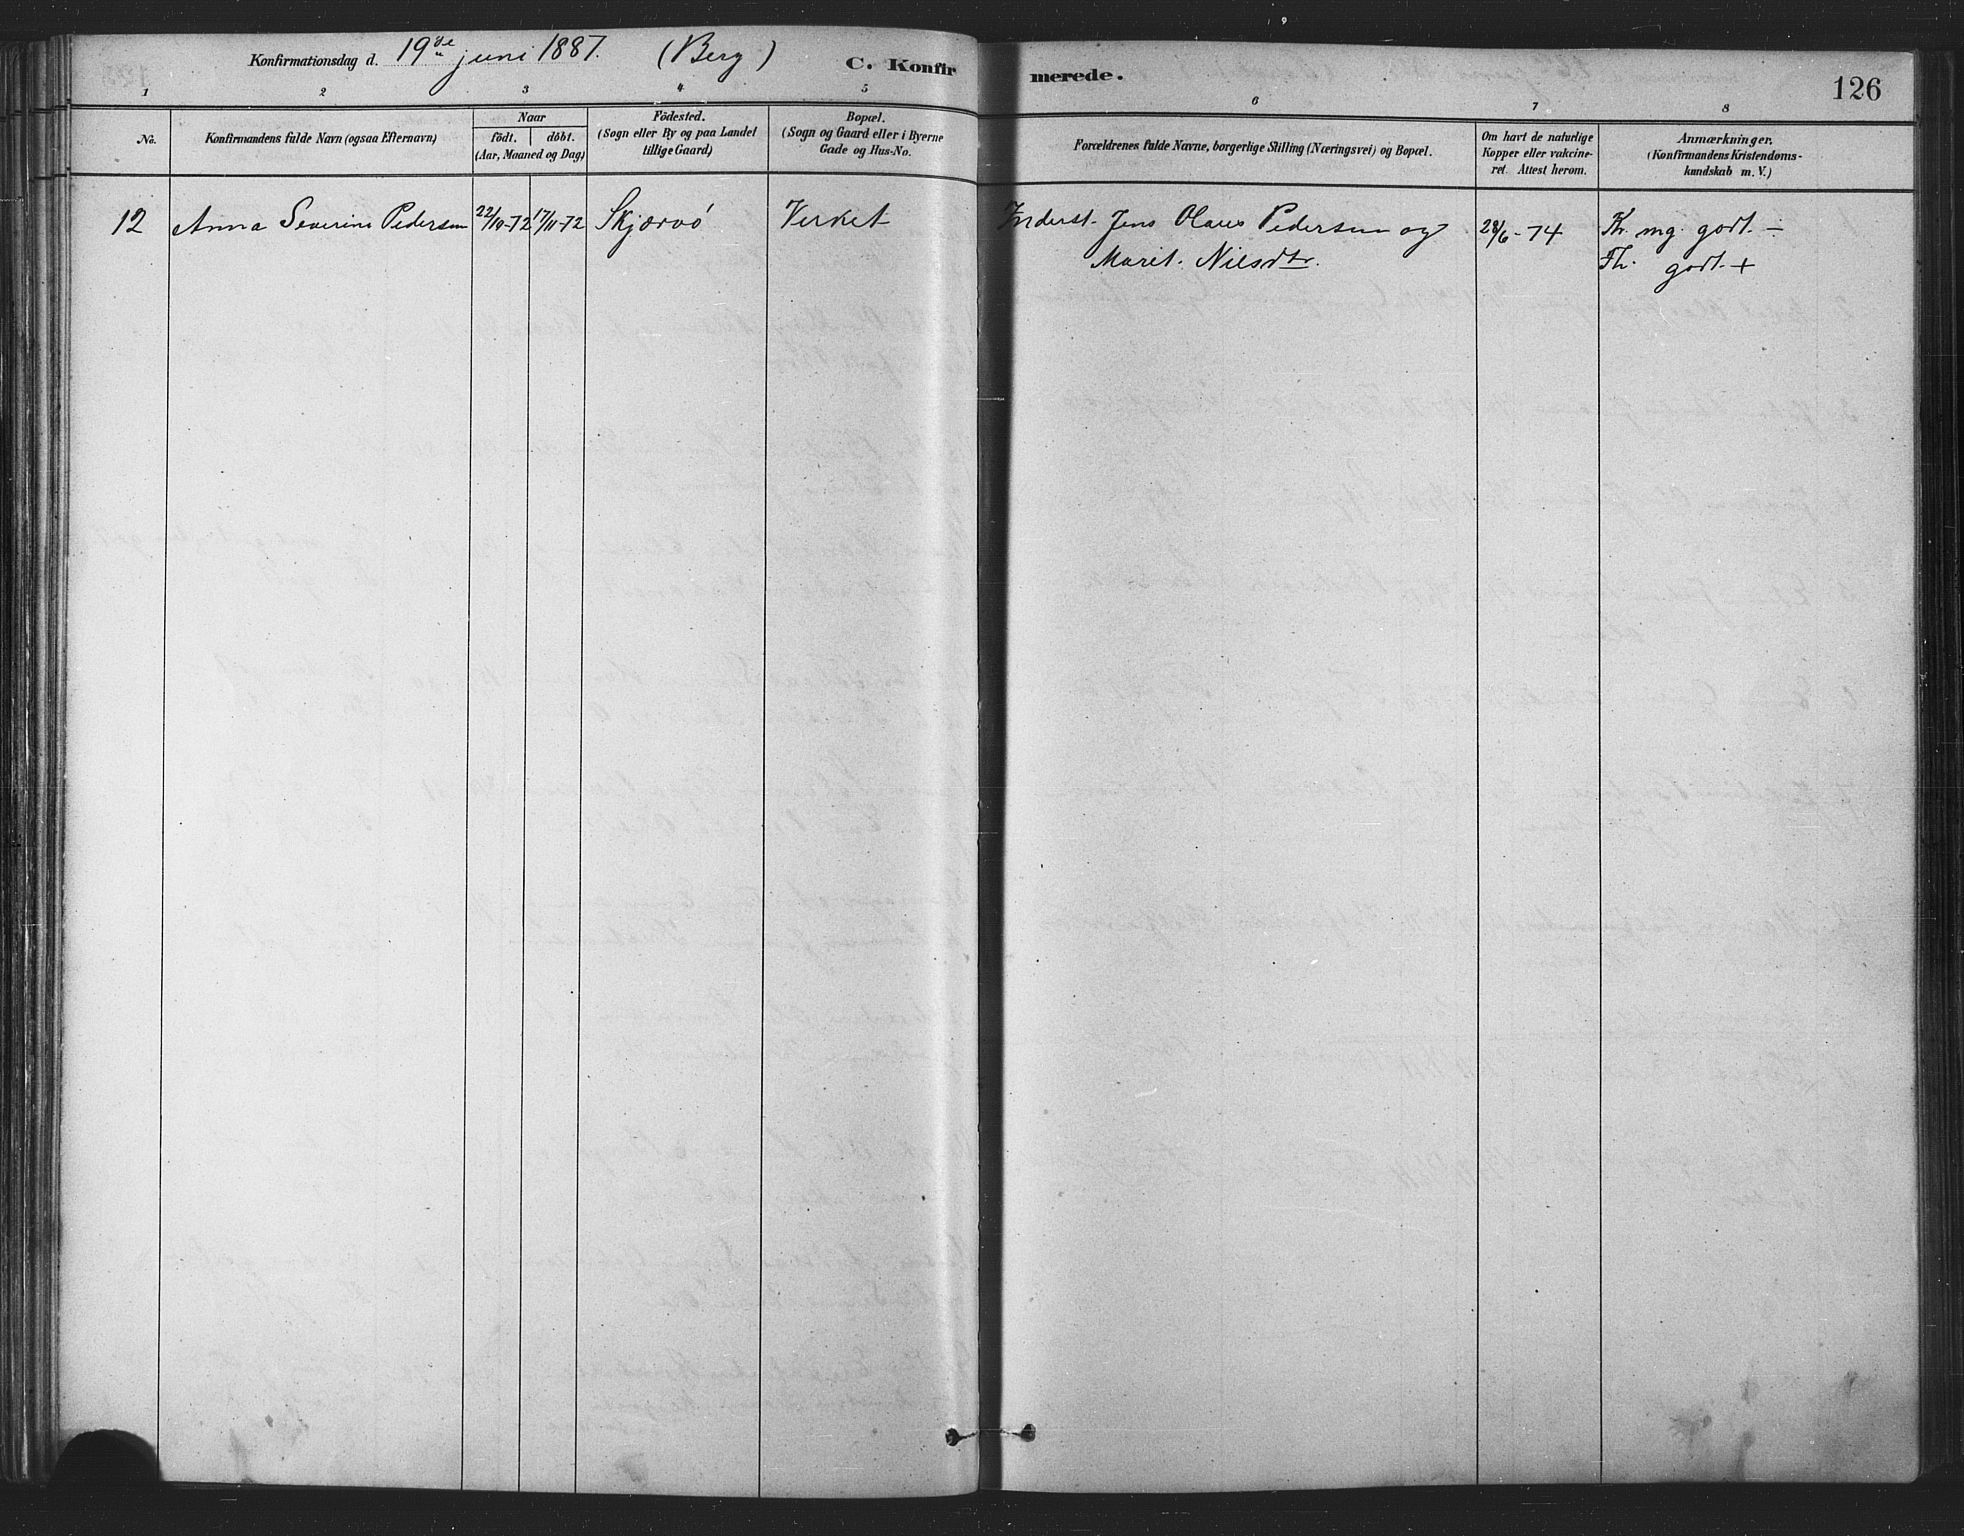 Konfirmationsdag d. 19de juni 1887. (Berg) C. Konfirmerede. 126
1 2 3 4 5 6 7 8
No.
Konfirmandens fulde Navn (ogsaa Efternavn)
Naar
födt. döbt.
(Aar, Maaned og Dag)
Födested.
(Sogn eller By og paa Landet
tillige Gaard)
Bopæl.
(Sogn og Gaard eller i Byerne
Gade og Hus-No.
Forældrenes fulde Navne, borgerlige Stilling (Næringsvei) og Bopæl.
Om havt de naturlige
Kopper eller vakcine-
ret. Attest herom.
Anmærkninger.
(Konfirmandens Kristendoms-
kundskab m. V.)
12 Anna Severine Pedersen 22/10-72 17/11-72 Skjærvö Verket Inderst. Jens Olaus Pedersen og 28/6-74 Kr. mg. godt. ÷
Marit. Nilsdtr. Fh. godt. +